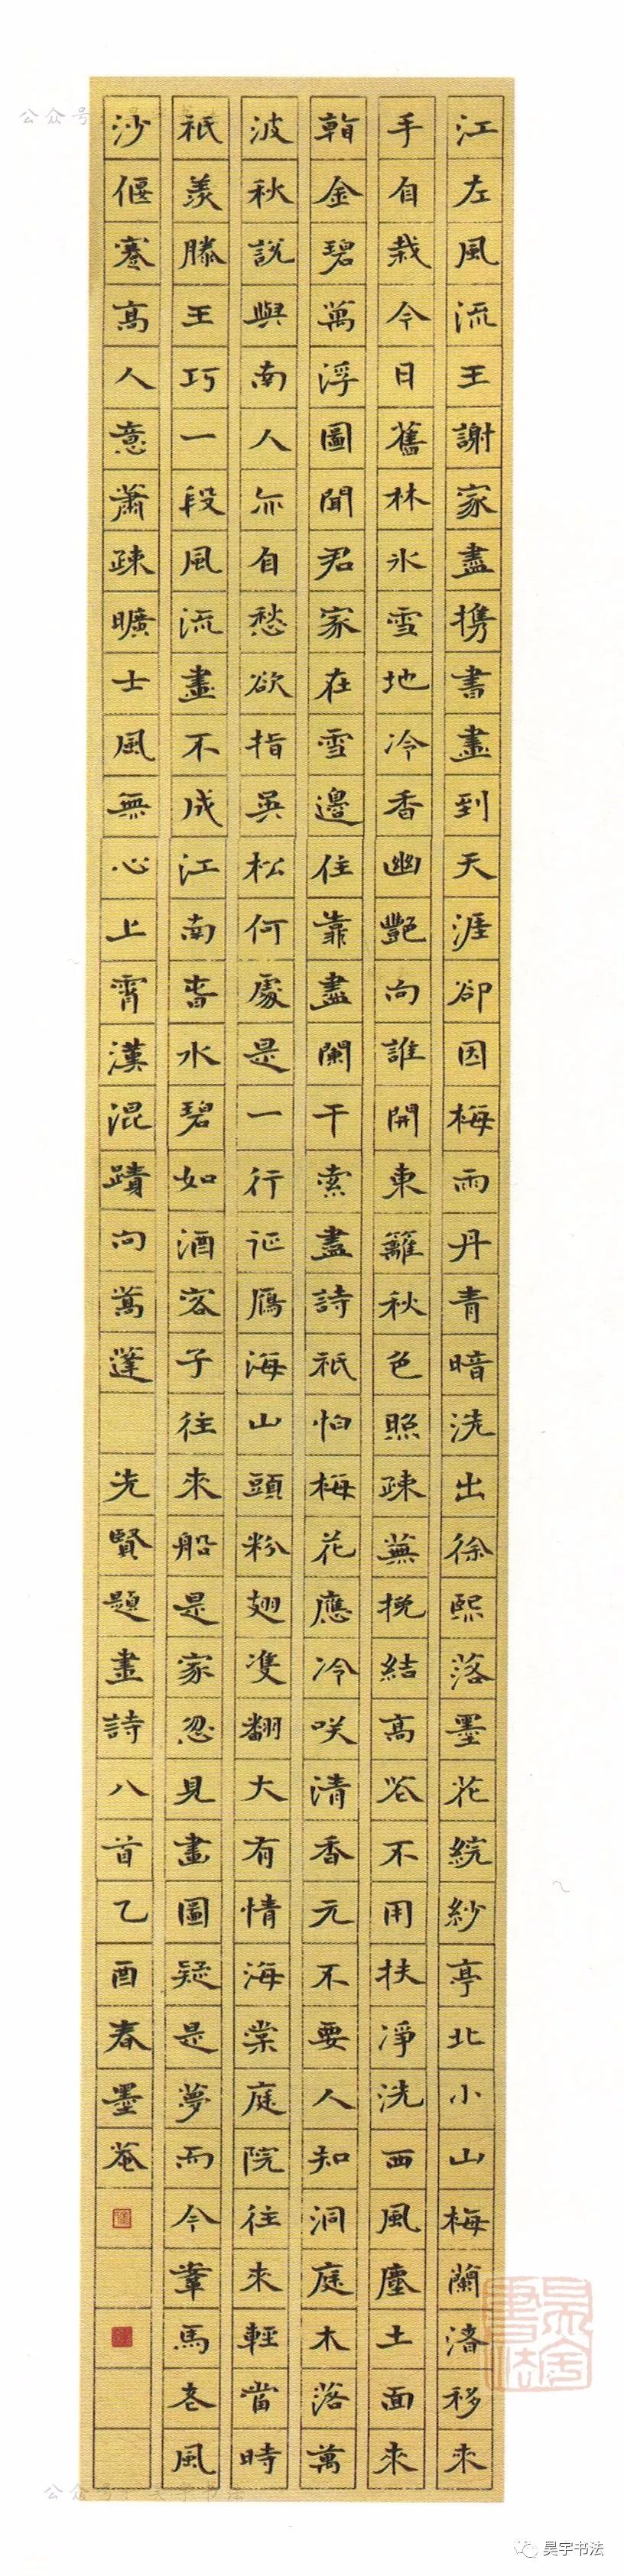 江左風流王謝家盡携書畫到天涯卻因梅雨丹青暗洗出徐熙落墨花綄紗亭北小山梅蘭渚移來
手自栽今日舊林冰雪地冷香幽艷向誰開東籬秋色照疎蕪挽結高姿不用扶淨洗西風塵土面來
看金碧萬浮圖聞君家在雪邊住靠盡闌干索盡詩祇怕梅花應冷咲清香元不要人知洞庭木落萬
波秋說與南人亦自愁欲指吳松何處是一行征鴈海山頭粉翅雙翻大有情海棠庭院往來輕當時
祇羨滕王巧一段風流畫不成江南春水碧如酒客子往來船是家忽見畫圖疑是夢而今鞌馬老風
沙偃蹇高人意蕭疎曠士風無心上霄漢混蹟向蒿蓬 先賢題畫詩八首乙酉春墨菴
昊宇书法